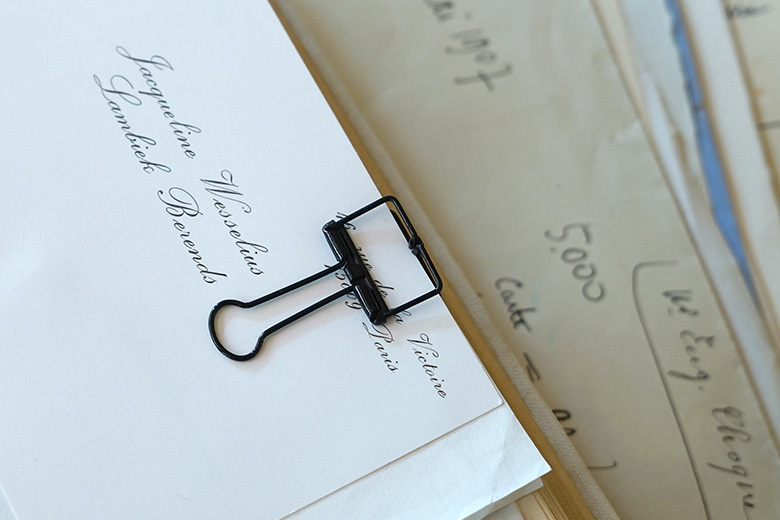 Jacqueline Wesselius
Lambiek Berends
rue de la Victoire
Paris
1907
5.000
Carte
Mr Eug.